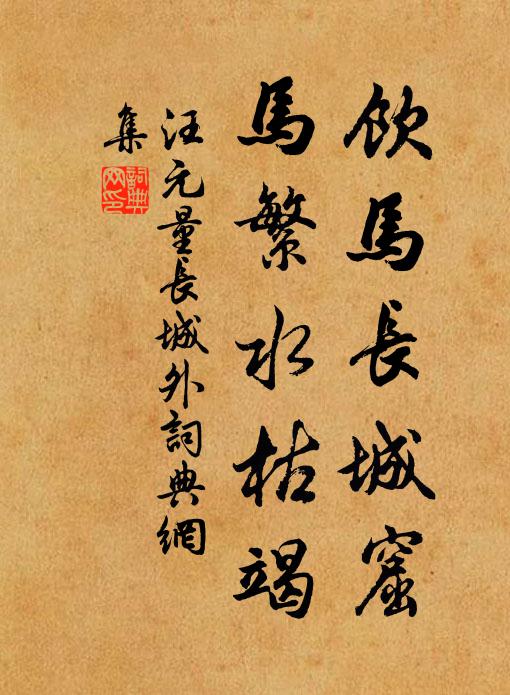 飲馬長城窟
馬繁水枯竭
汪元量長城外詞典網
集
詞典
网印